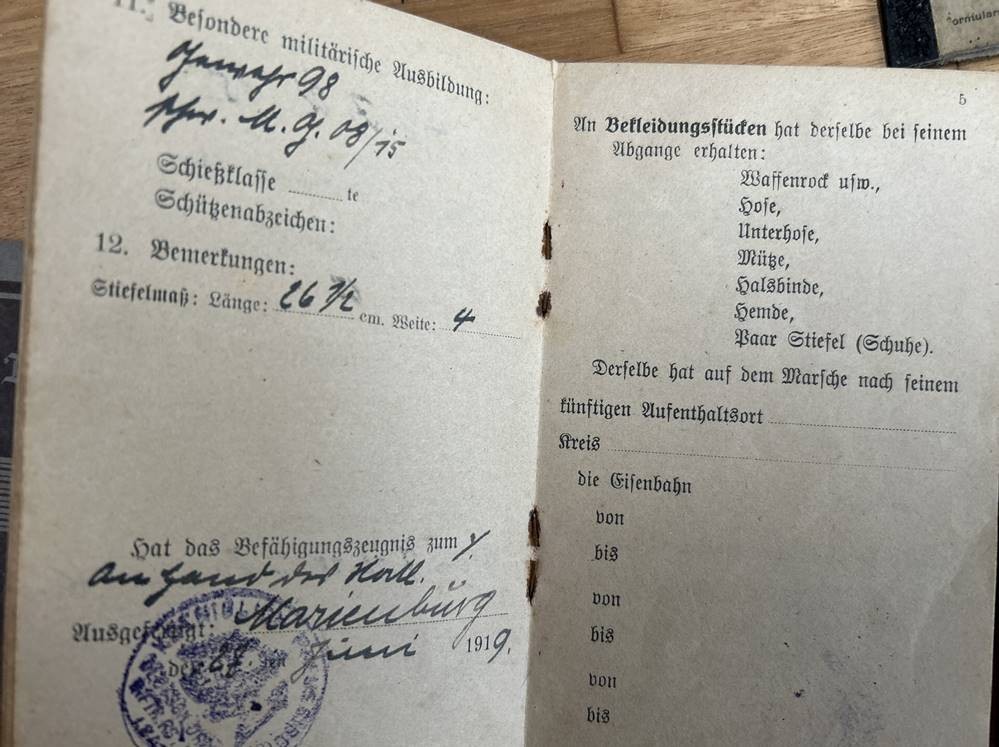 11. Besondere militärische Ausbildung:
Gewehr 98
schw. M. G. 08/15
Schießklasse te
Schützenabzeichen:
12. Bemerkungen:
Stiefelmaß: Länge: 26 1/2 cm. Weite: 4
Hat das Befähigungszeugnis zum
An Hand der
Ausgefertigt: Marienburg
den 28. ten Juni 1919.
5
An Bekleidungsstücken hat derselbe bei seinem
Abgange erhalten:
Waffenrock usw.,
Hose,
Unterhose,
Mütze,
Halsbinde,
Hemde,
Paar Stiefel (Schuhe).
Derselbe hat auf dem Marsche nach seinem
künftigen Aufenthaltsort
Kreis
die Eisenbahn
von
bis
von
bis
von
bis